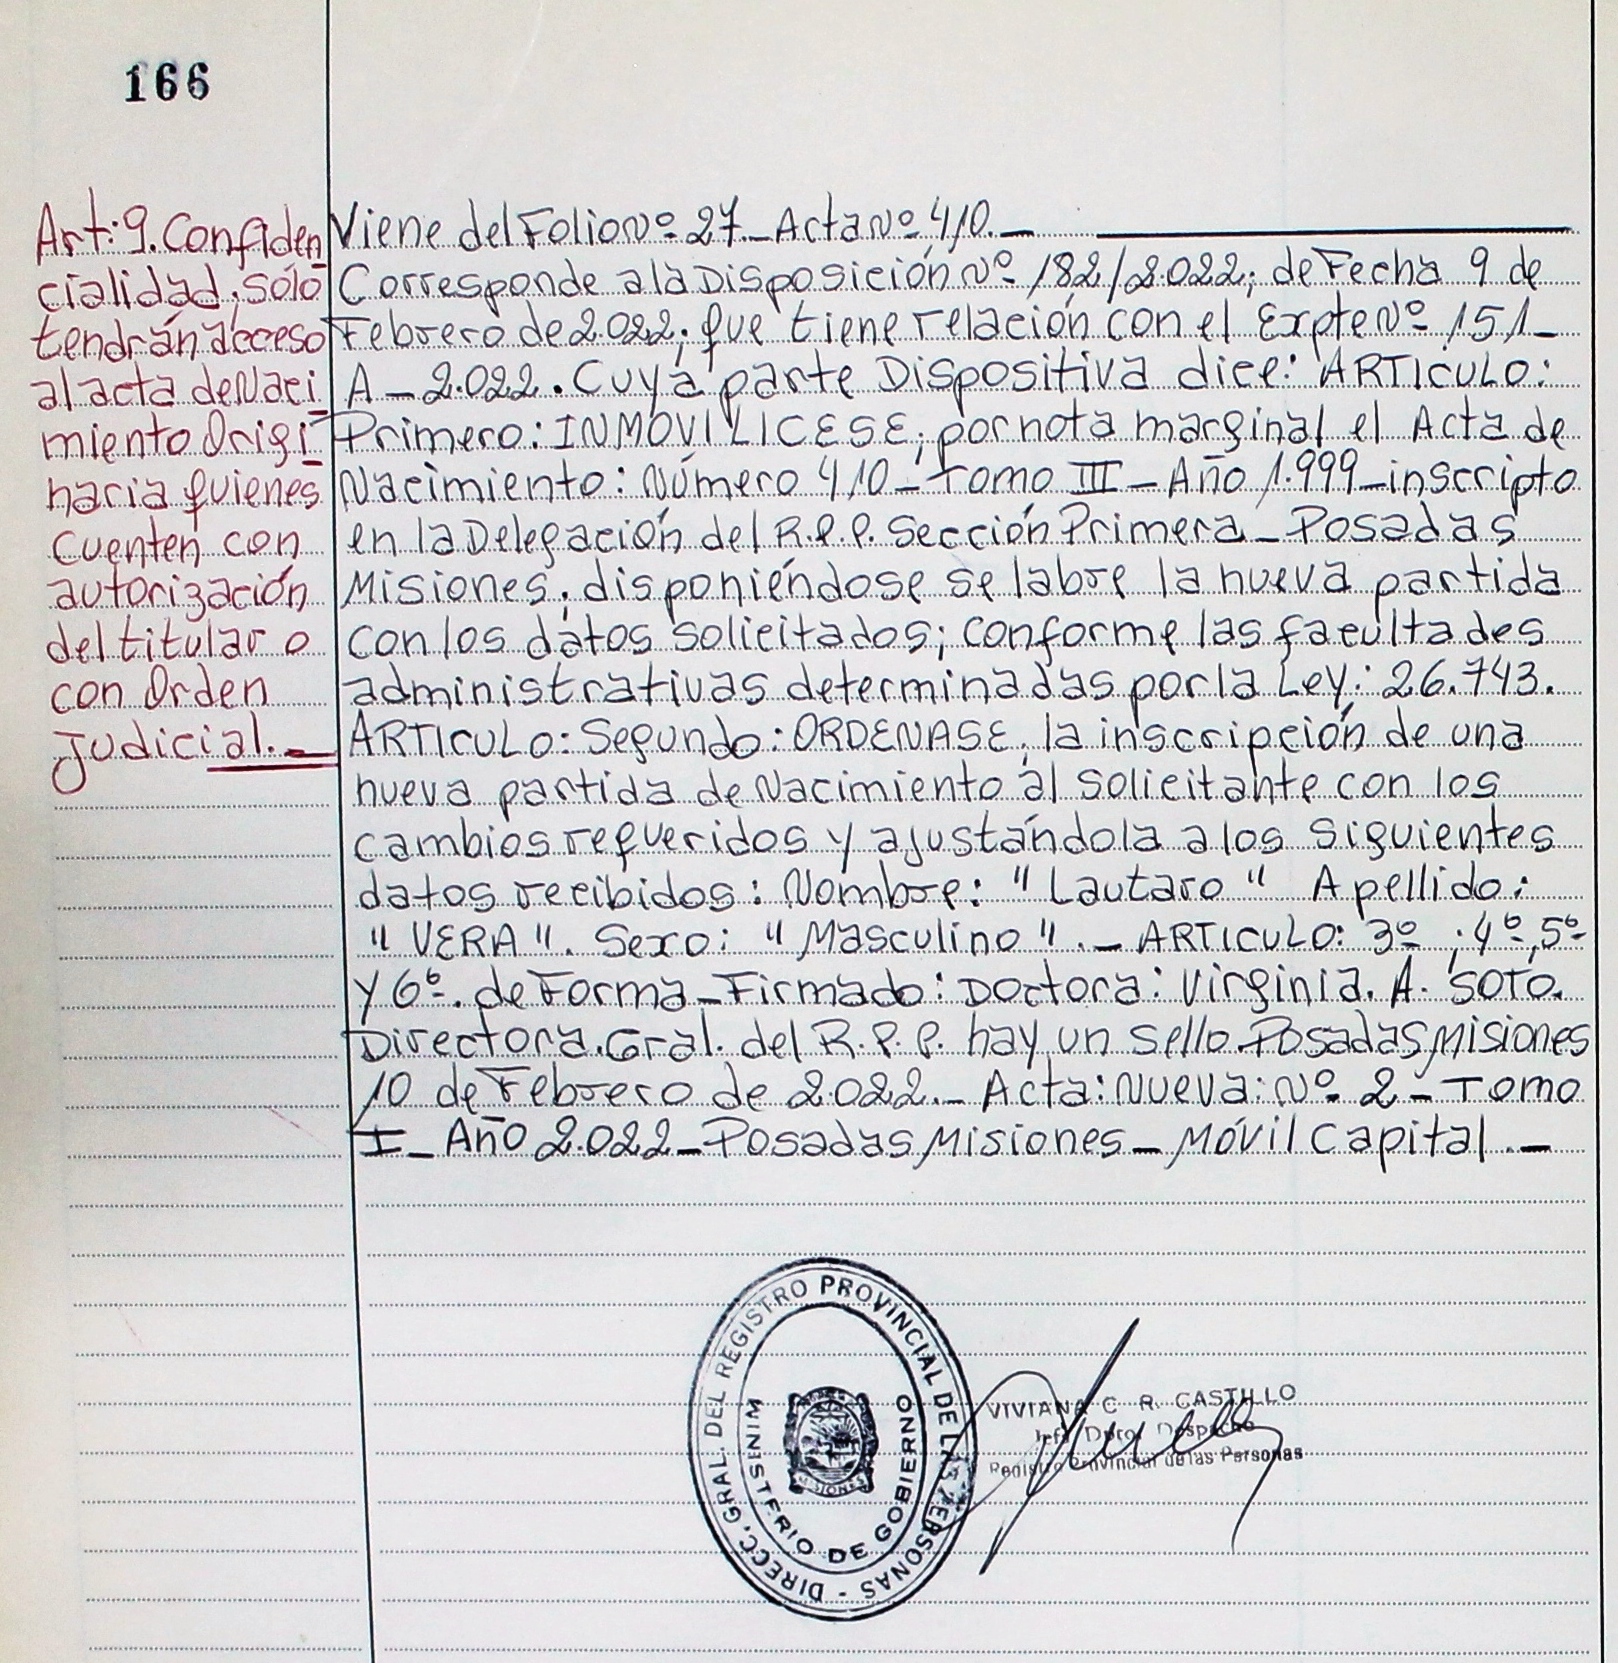 166
Art: 9. Confiden
cialidad, sólo
tendrán acceso
al acta de Naci
miento Origi
naria quienes
cuenten con
autorización
del titular o
con Orden
Judicial._
Viene del Folio Nº 27_Acta Nº 410._
Corresponde a la Disposición Nº 182/2.022; de Fecha 9 de
Febrero de 2.022; que tiene relación con el Expte Nº 151_
A_2.022. Cuya parte Dispositiva dice: ARTICULO:
Primero: INMOVILICESE, por nota marginal el Acta de
Nacimiento: Número 410_Tomo III_Año 1.999_inscripto
en la Delegación del R.P.P. Sección Primera_Posadas
Misiones, disponiéndose se labre la nueva partida
con los datos solicitados; conforme las facultades
administrativas determinadas por la Ley: 26.743.
ARTICULO: Segundo: ORDENASE, la inscripción de una
nueva partida de Nacimiento al solicitante con los
cambios requeridos y ajustándola a los siguientes
datos recibidos: Nombre: "Lautaro" Apellido:
"VERA". Sexo: "Masculino"._ARTICULO: 3º, 4º, 5º
y 6º. de Forma_Firmado: Doctora: Virginia. A. SOTO.
Directora. Gral. del R.P.P. hay un sello. Posadas, Misiones
10 de Febrero de 2.022._ Acta: Nueva: Nº 2_Tomo
I_Año 2.022_Posadas, Misiones_Móvil Capital._
DIRECC. GRAL. DEL REGISTRO PROVINCIAL DE LAS PERSONAS -
MINISTERIO DE GOBIERNO
MISIONES
VIVIANA C. R. CASTILLO
Registro Provincial de las Personas